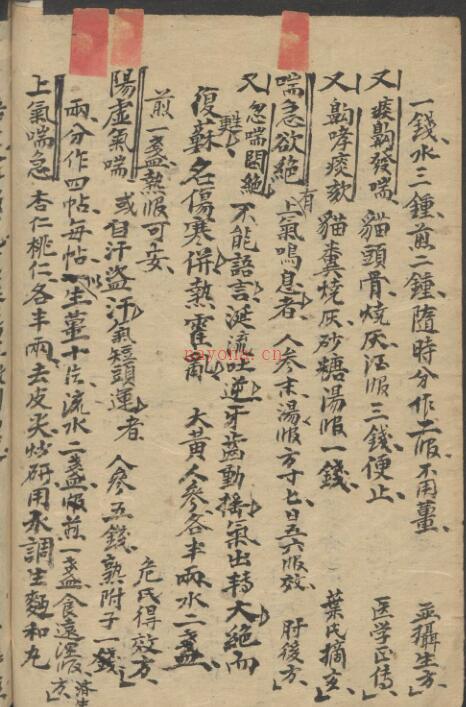 一錢、水三鍾、煎二鍾、隨時分作二服、不用薑、 並攝生方」
又 痰齁發喘、貓頭骨燒灰、酒服三錢、便止 医学正傳」
又 齁哮痰欬 貓糞燒灰、砂糖湯服一錢 葉氏摘玄」
喘急欲絶 上氣鳴息者、人参末、湯服方寸匕、日五六服效 肘後方」
又 忽喘悶絶 不能語言、涎流吐逆、牙齒動搖、氣出轉大、絶而
甦
復蘇、名傷寒併熱霍亂、大黃人参各半兩、水二盞、
煎一盞、熱服可安、 危氏得效方」
陽虚氣喘 或自汗盜汗、氣短頭運者、人参五錢、熟附子一錢、
兩、分作四帖、每帖以生薑十片、流水二盞、煎一盞、食遠溫服、 濟生方」
上氣喘急 杏仁桃仁各半兩、去皮尖、炒研、用水調生麵和丸
nayona.cn